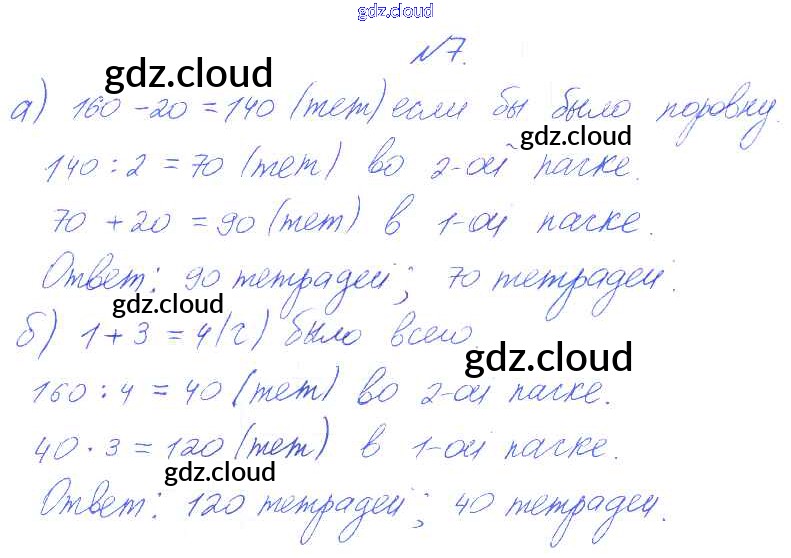 gdz.cloud
№7.
gdz.cloud
а) 160 - 20 = 140 (тет) если бы было поровну.
gdz.cloud
140 : 2 = 70 (тет) во 2-ой пачке.
70 + 20 = 90 (тет) в 1-ой пачке.
Ответ: 90 тетрадей; 70 тетрадей.
gdz.cloud
б) 1 + 3 = 4 (ч) было всего.
gdz.cloud
160 : 4 = 40 (тет) во 2-ой пачке.
40 · 3 = 120 (тет) в 1-ой пачке.
gdz.cloud
Ответ: 120 тетрадей; 40 тетрадей.